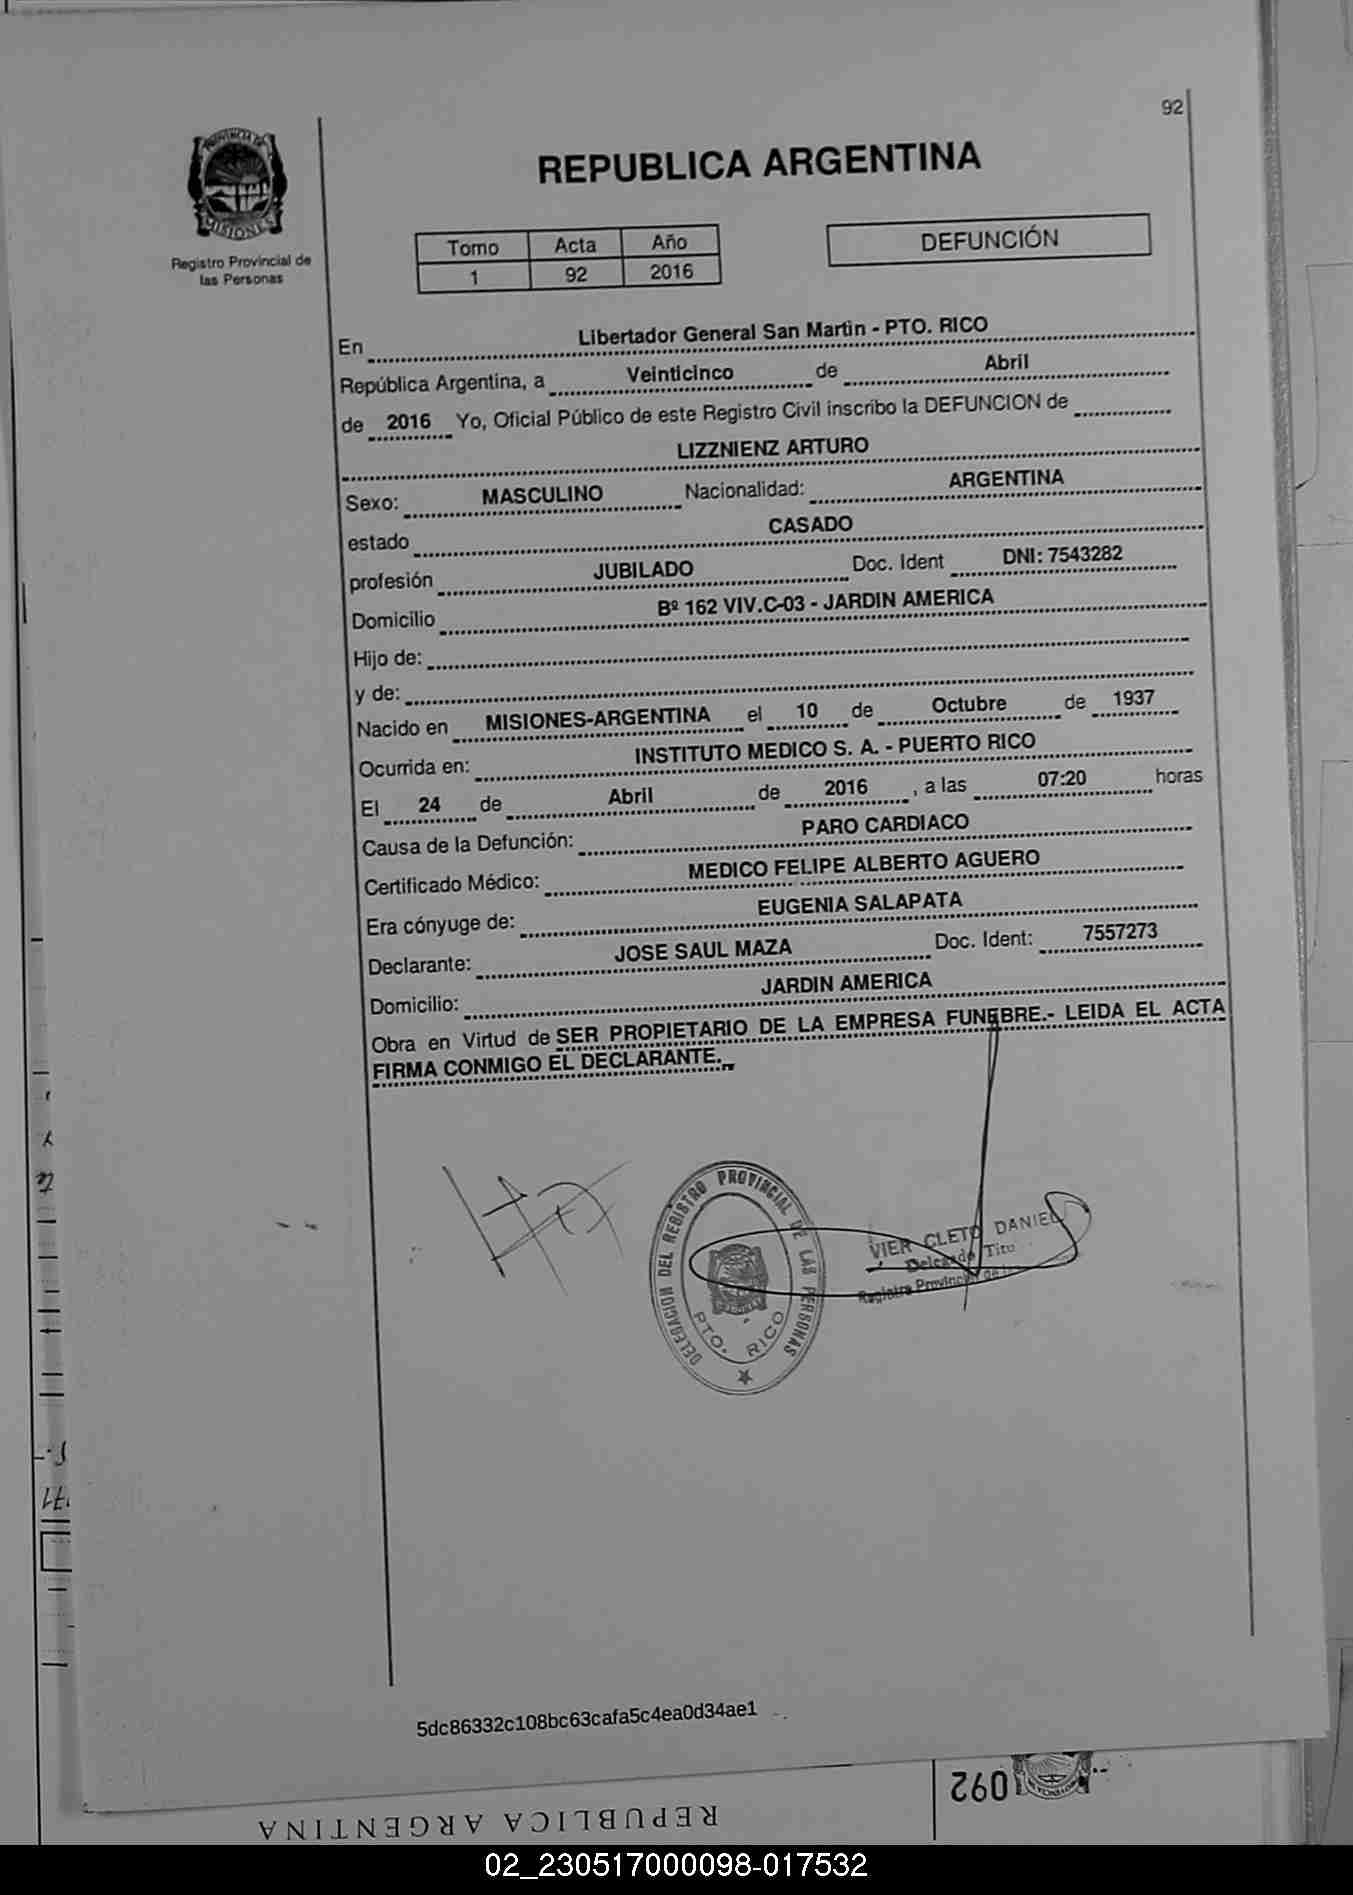 92
PROVINCIA DE
MISIONES
Registro Provincial de
las Personas
REPUBLICA ARGENTINA
Tomo Acta Año
1 92 2016
DEFUNCIÓN
En Libertador General San Martin - PTO. RICO
República Argentina, a Veinticinco de Abril
de 2016 Yo, Oficial Público de este Registro Civil inscribo la DEFUNCION de
LIZZNIENZ ARTURO
Sexo: MASCULINO Nacionalidad: ARGENTINA
estado CASADO
profesión JUBILADO Doc. Ident DNI: 7543282
Domicilio Bº 162 VIV.C-03 - JARDIN AMERICA
Hijo de:
y de:
Nacido en MISIONES-ARGENTINA el 10 de Octubre de 1937
Ocurrida en: INSTITUTO MEDICO S. A. - PUERTO RICO
El 24 de Abril de 2016 , a las 07:20 horas
Causa de la Defunción: PARO CARDIACO
Certificado Médico: MEDICO FELIPE ALBERTO AGUERO
Era cónyuge de: EUGENIA SALAPATA
Declarante: JOSE SAUL MAZA Doc. Ident: 7557273
Domicilio: JARDIN AMERICA
Obra en Virtud de SER PROPIETARIO DE LA EMPRESA FUNEBRE.- LEIDA EL ACTA
FIRMA CONMIGO EL DECLARANTE.
DELEGACION DEL REGISTRO PROVINCIAL DE LAS PERSONAS
PTO. RICO
VIER CLETO DANIEL
Delegado Titu
Registro Provincial de
5dc86332c108bc63cafa5c4ea0d34ae1
092
REPUBLICA ARGENTINA
02_230517000098-017532